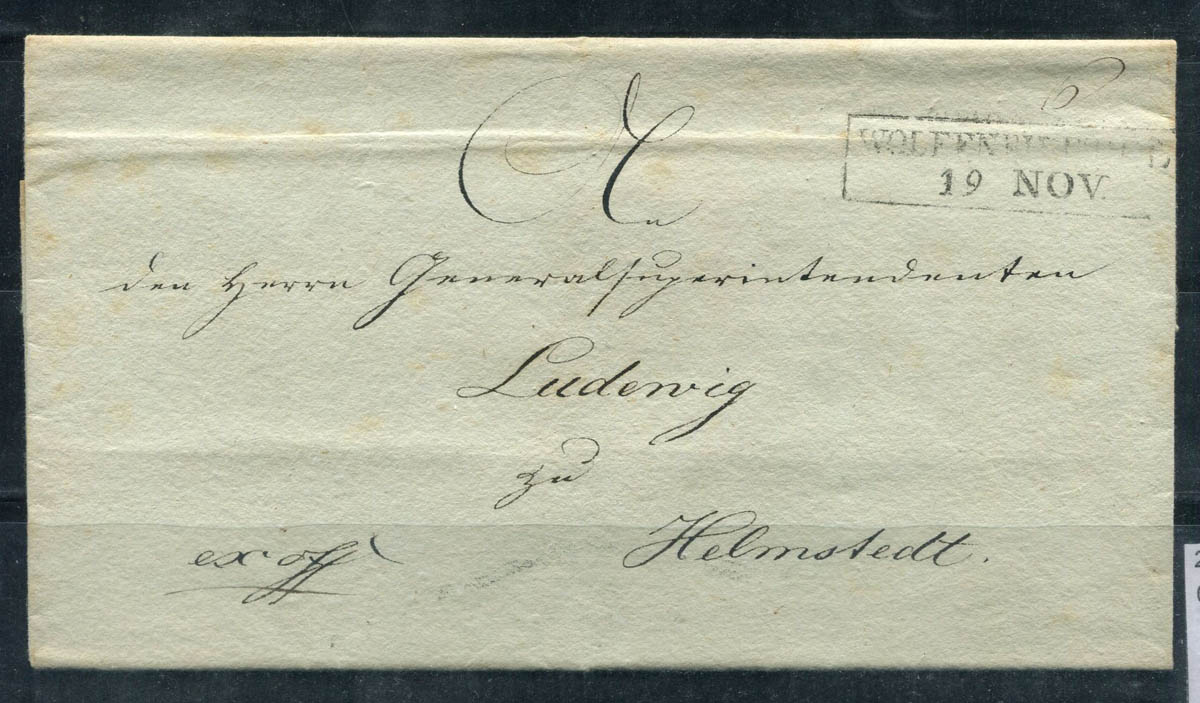 An
WOLFENBÜTTEL
19 NOV.
den Herrn Generalsuperintendenten
Ludewig
zu
Helmstedt.
ex off